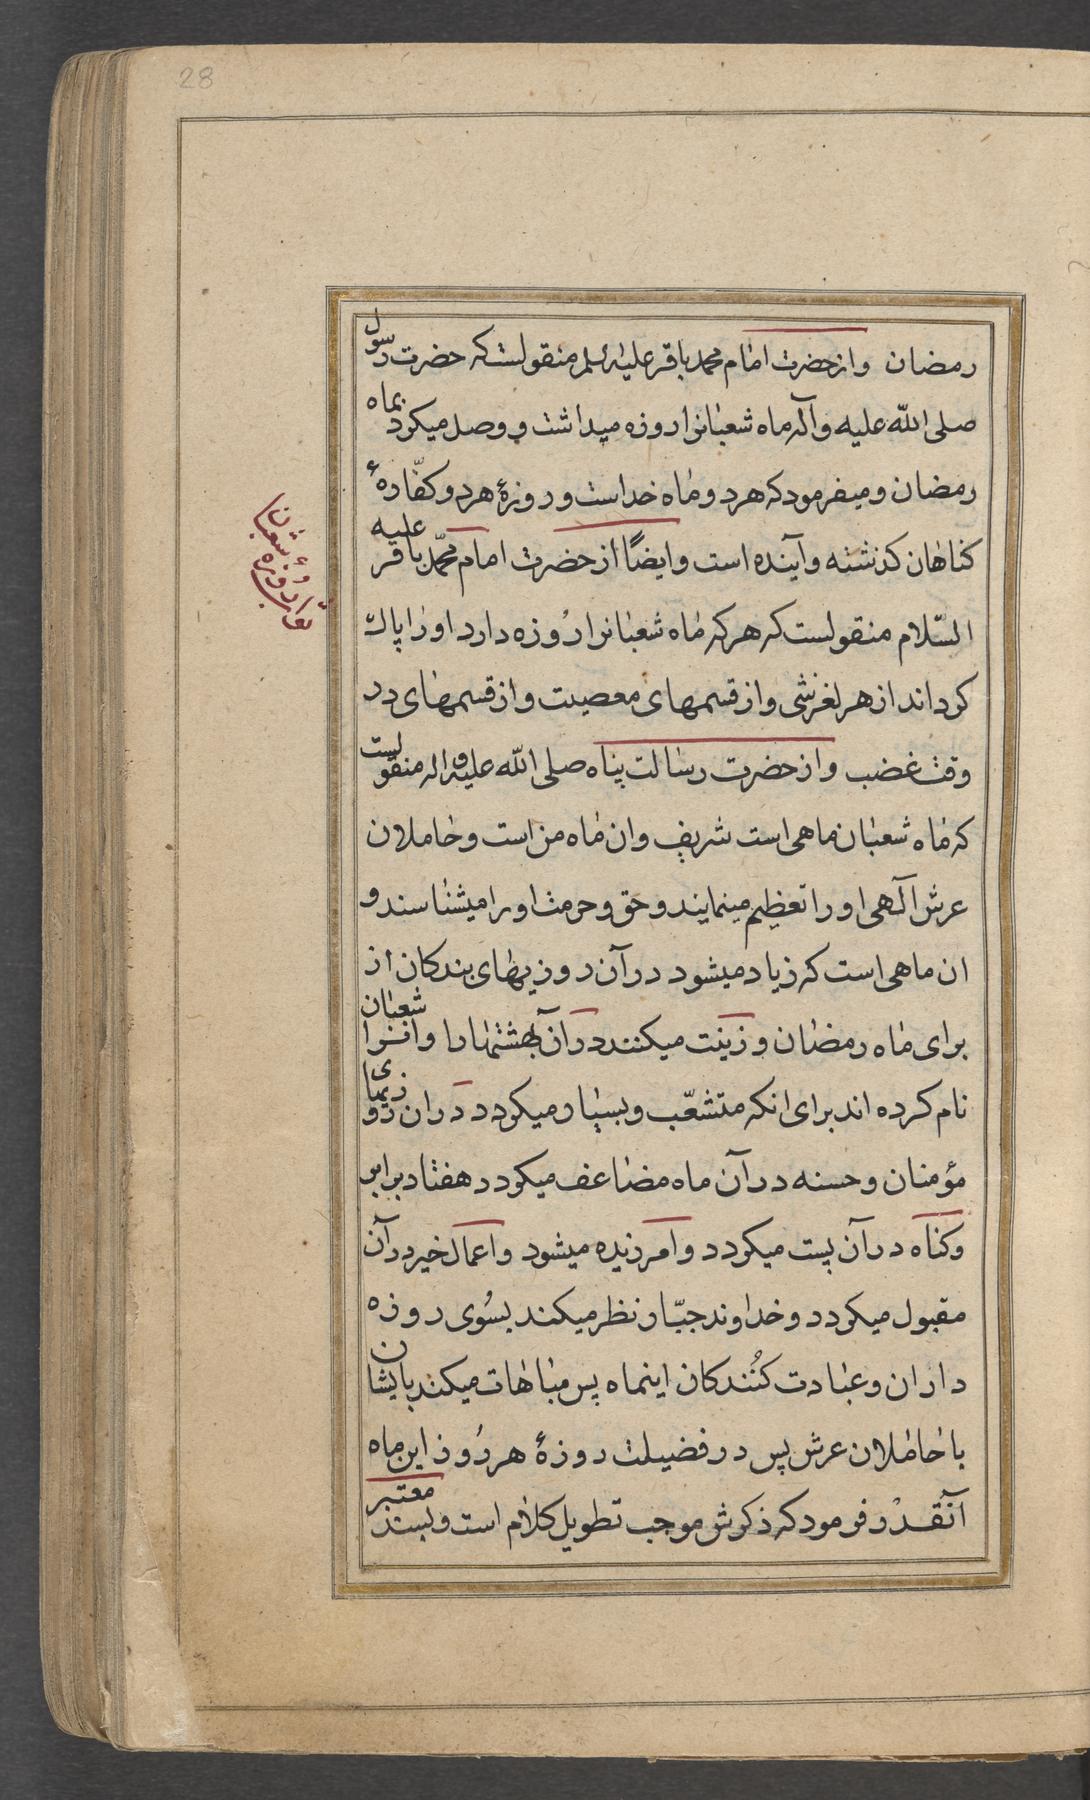 28
رمضان واز حضرت امام محمد باقر علیه السلم منقولست که حضرت رسول
صلی الله علیه وآله ماه شعبانرا روزه میداشت و وصل میکرد بماه
رمضان ومیفرمود که هر دو ماه خداست و روزهٔ هر دو کفّارهٔ
کناهان کذشته وآینده است وایضًا از حضرت امام محمّد باقر علیه
السّلام منقولست که هر که ماه شعبانرا رُوزه دارد اورا پاک
کرداند از هر لغزشی واز قسمهای معصیت واز قسمهای در
وقت غضب واز حضرت رسالت پناه صلی الله علیه واله منقولست
که ماه شعبان ماهی است شریف وان ماه من است وحاملان
عرش آلهی اورا تعظیم مینمایند وحق وحرمت اورا میشناسند و
ان ماهی است که زیاد میشود در آن روزیهای بندکان از
برای ماه رمضان وزینت میکنند در آن بهشتها را وآنرا شعبان
نام کرده اند برای انکه متشعّب وبسیار میکردد در ان روزیهای
مؤمنان وحسنه در آن ماه مضاعف میکردد هفتاد برابر
وکناه در آن پست میکردد وامرزیده میشود واعمال خیر در آن
مقبول میکردد وخداوند جبّار نظر میکند بسُوی روزه
داران وعبادت کنُندکان اینماه پس مباهات میکند بایشان
با حاملان عرش پس در فضیلت روزهٔ هر رُوز این ماه
آنقدْر فرمود که ذکرش موجب تطویل کلام است وبسند معتبر
ثواب روزهٔ شعبان